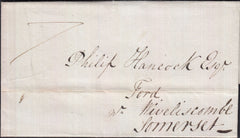 Philip Hancock Esqr
Ford
nr Wiveliscombe
Somerset